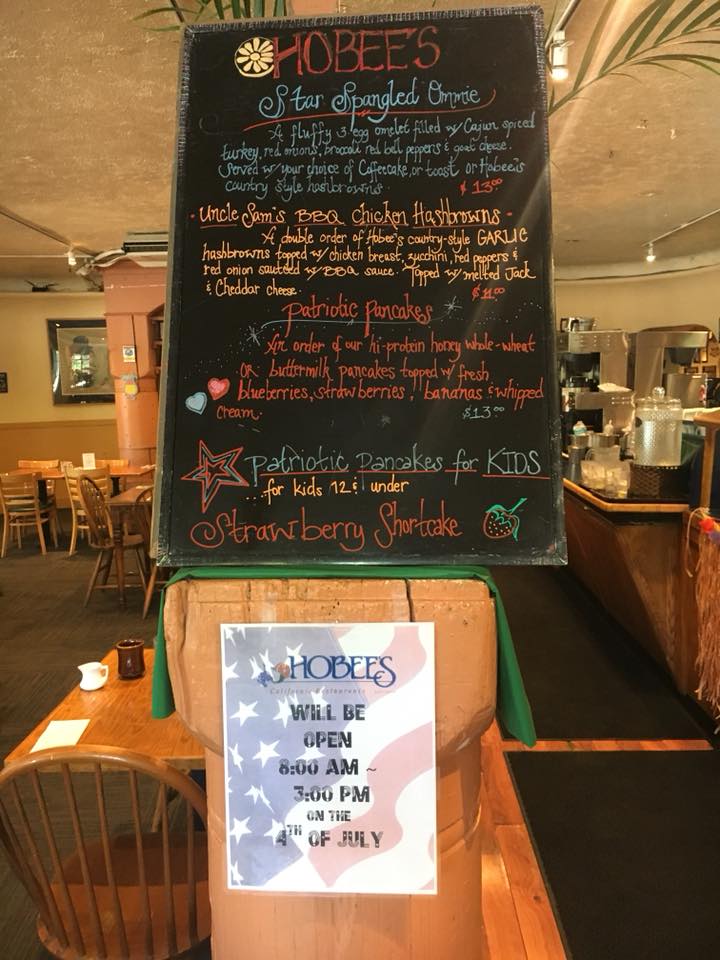 HOBEE'S
Star Spangled Ommie
A fluffy 3-egg omelet filled w/ Cajun spiced
turkey, red onions, broccoli red bell peppers & goat cheese.
Served w/ your choice of Coffeecake, or toast or Hobee's
country style hashbrowns.
$13.00
- Uncle Sam's BBQ Chicken Hashbrowns -
A double order of Hobee's country-style GARLIC
hashbrowns topped w/ chicken breast, zucchini, red peppers &
red onion sautéed w/ BBQ sauce. Topped w/ melted Jack
& Cheddar cheese.
Patriotic Pancakes
An order of our hi-protein honey whole-wheat
OR buttermilk pancakes topped w/ fresh
blueberries, strawberries, bananas & whipped
cream.
$13.00
Patriotic Pancakes for KIDS
...for kids 12 & under
Strawberry Shortcake
HOBEE'S
California Restaurants
WILL BE
OPEN
8:00 AM ~
3:00 PM
ON THE
4TH OF JULY